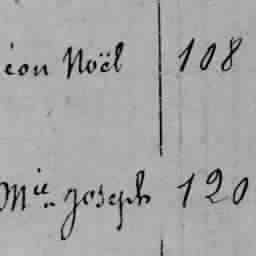 éon Noël 108
Mie Joseph 120